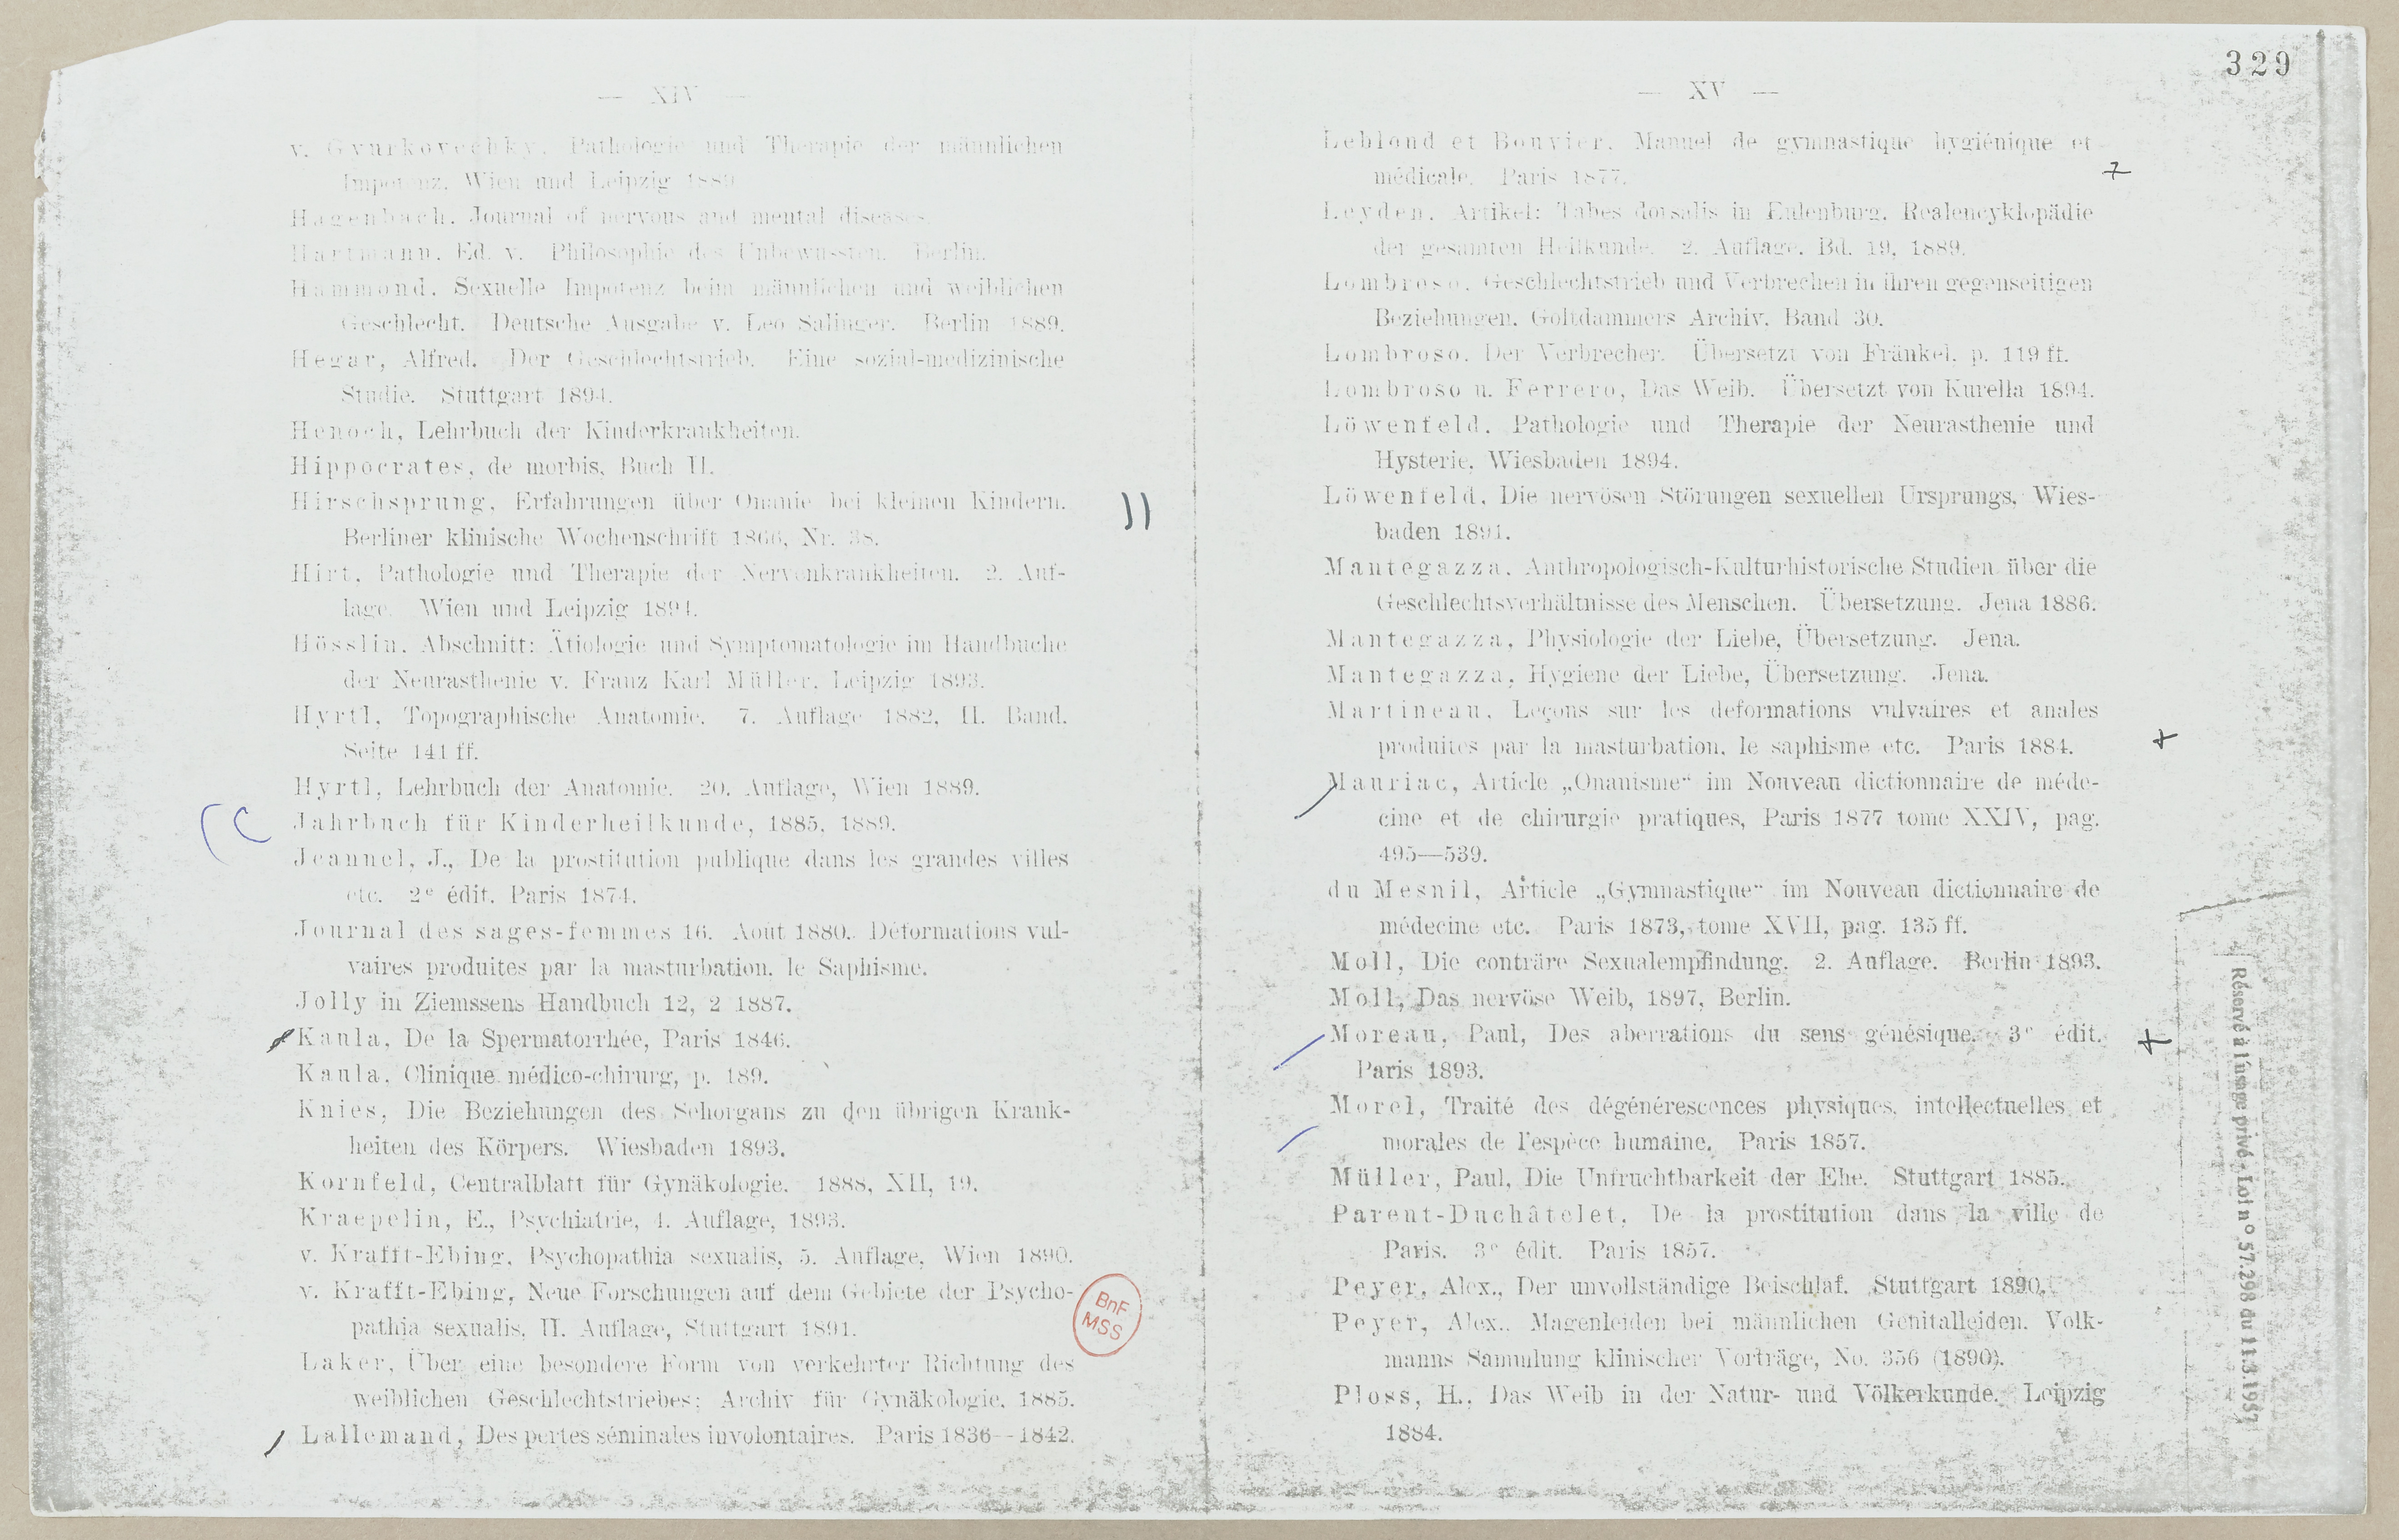 329
— XIV —
v. Gyurkovechky, Pathologie und Therapie der männlichen
Impotenz. Wien und Leipzig 1889.
Hagenbach. Journal of nervous and mental diseases.
Hartmann. Ed. v. Philosophie des Unbewussten. Berlin.
Hammond. Sexuelle Impotenz beim männlichen und weiblichen
Geschlecht. Deutsche Ausgabe v. Leo Salinger. Berlin 1889.
Hegar, Alfred. Der Geschlechtstrieb. Eine sozial-medizinische
Studie. Stuttgart 1894.
Henoch, Lehrbuch der Kinderkrankheiten.
Hippocrates, de morbis, Buch II.
Hirschsprung, Erfahrungen über Onanie bei kleinen Kindern.
Berliner klinische Wochenschrift 1866, Nr. 38.
Hirt, Pathologie und Therapie der Nervenkrankheiten. 2. Auf-
lage. Wien und Leipzig 1894.
Hösslin. Abschnitt: Ätiologie und Symptomatologie im Handbuche
der Neurasthenie v. Franz Karl Müller. Leipzig 1893.
Hyrtl, Topographische Anatomie. 7. Auflage 1882, II. Band.
Seite 141 ff.
Hyrtl, Lehrbuch der Anatomie. 20. Auflage, Wien 1889.
Jahrbuch für Kinderheilkunde, 1885, 1889.
Jeannel, J., De la prostitution publique dans les grandes villes
etc. 2e édit. Paris 1874.
Journal des sages-femmes 16. Août 1880. Déformations vul-
vaires produites par la masturbation, le Saphisme.
Jolly in Ziemssens Handbuch 12, 2 1887.
Kaula, De la Spermatorrhée, Paris 1846.
Kaula, Clinique médico-chirurg, p. 189.
Knies, Die Beziehungen des Sehorgans zu den übrigen Krank-
heiten des Körpers. Wiesbaden 1893.
Kornfeld, Centralblatt für Gynäkologie. 1888, XII, 19.
Kraepelin, E., Psychiatrie, 4. Auflage, 1893.
v. Krafft-Ebing, Psychopathia sexualis, 5. Auflage, Wien 1890.
v. Krafft-Ebing, Neue Forschungen auf dem Gebiete der Psycho-
pathia sexualis, II. Auflage, Stuttgart 1891.
Laker, Über eine besondere Form von verkehrter Richtung des
weiblichen Geschlechtstriebes; Archiv für Gynäkologie, 1885.
Lallemand, Des pertes séminales involontaires. Paris 1836—1842.
BnF
MSS
— XV —
Leblond et Bouvier. Manuel de gymnastique hygiénique et
médicale. Paris 1877.
Leyden. Artikel: Tabes dorsalis in Eulenburg. Realencyklopädie
der gesamten Heilkunde. 2. Auflage. Bd. 19, 1889.
Lombroso, Geschlechtstrieb und Verbrechen in ihren gegenseitigen
Beziehungen. Goltdammers Archiv. Band 30.
Lombroso. Der Verbrecher. Übersetzt von Fränkel. p. 119 ff.
Lombroso u. Ferrero, Das Weib. Übersetzt von Kurella 1894.
Löwenfeld. Pathologie und Therapie der Neurasthenie und
Hysterie. Wiesbaden 1894.
Löwenfeld, Die nervösen Störungen sexuellen Ursprungs. Wies-
baden 1891.
Mantegazza. Anthropologisch-Kulturhistorische Studien über die
Geschlechtsverhältnisse des Menschen. Übersetzung. Jena 1886.
Mantegazza, Physiologie der Liebe, Übersetzung. Jena.
Mantegazza, Hygiene der Liebe, Übersetzung. Jena.
Martineau. Leçons sur les deformations vulvaires et anales
produites par la masturbation, le saphisme etc. Paris 1884.
Mauriac, Article „Onanisme“ im Nouveau dictionnaire de méde-
cine et de chirurgie pratiques, Paris 1877 tome XXIV, pag.
495—539.
du Mesnil, Article „Gymnastique“ im Nouveau dictionnaire de
médecine etc. Paris 1873, tome XVII, pag. 135 ff.
Moll, Die conträre Sexualempfindung. 2. Auflage. Berlin 1893.
Moll, Das nervöse Weib, 1897, Berlin.
Moreau, Paul, Des aberrations du sens génésique. 3e édit.
Paris 1893.
Morel, Traité des dégénérescences physiques, intellectuelles et
morales de l'espèce humaine. Paris 1857.
Müller, Paul, Die Unfruchtbarkeit der Ehe. Stuttgart 1885.
Parent-Duchâtelet. De la prostitution dans la ville de
Paris. 3e édit. Paris 1857.
Peyer, Alex., Der unvollständige Beischlaf. Stuttgart 1890.
Peyer, Alex., Magenleiden bei männlichen Genitalleiden. Volk-
manns Sammlung klinischer Vorträge, No. 356 (1890).
Ploss, H., Das Weib in der Natur- und Völkerkunde. Leipzig
1884.
Réservé à l'usage privé - Loi n° 57.298 du 11.3.1957